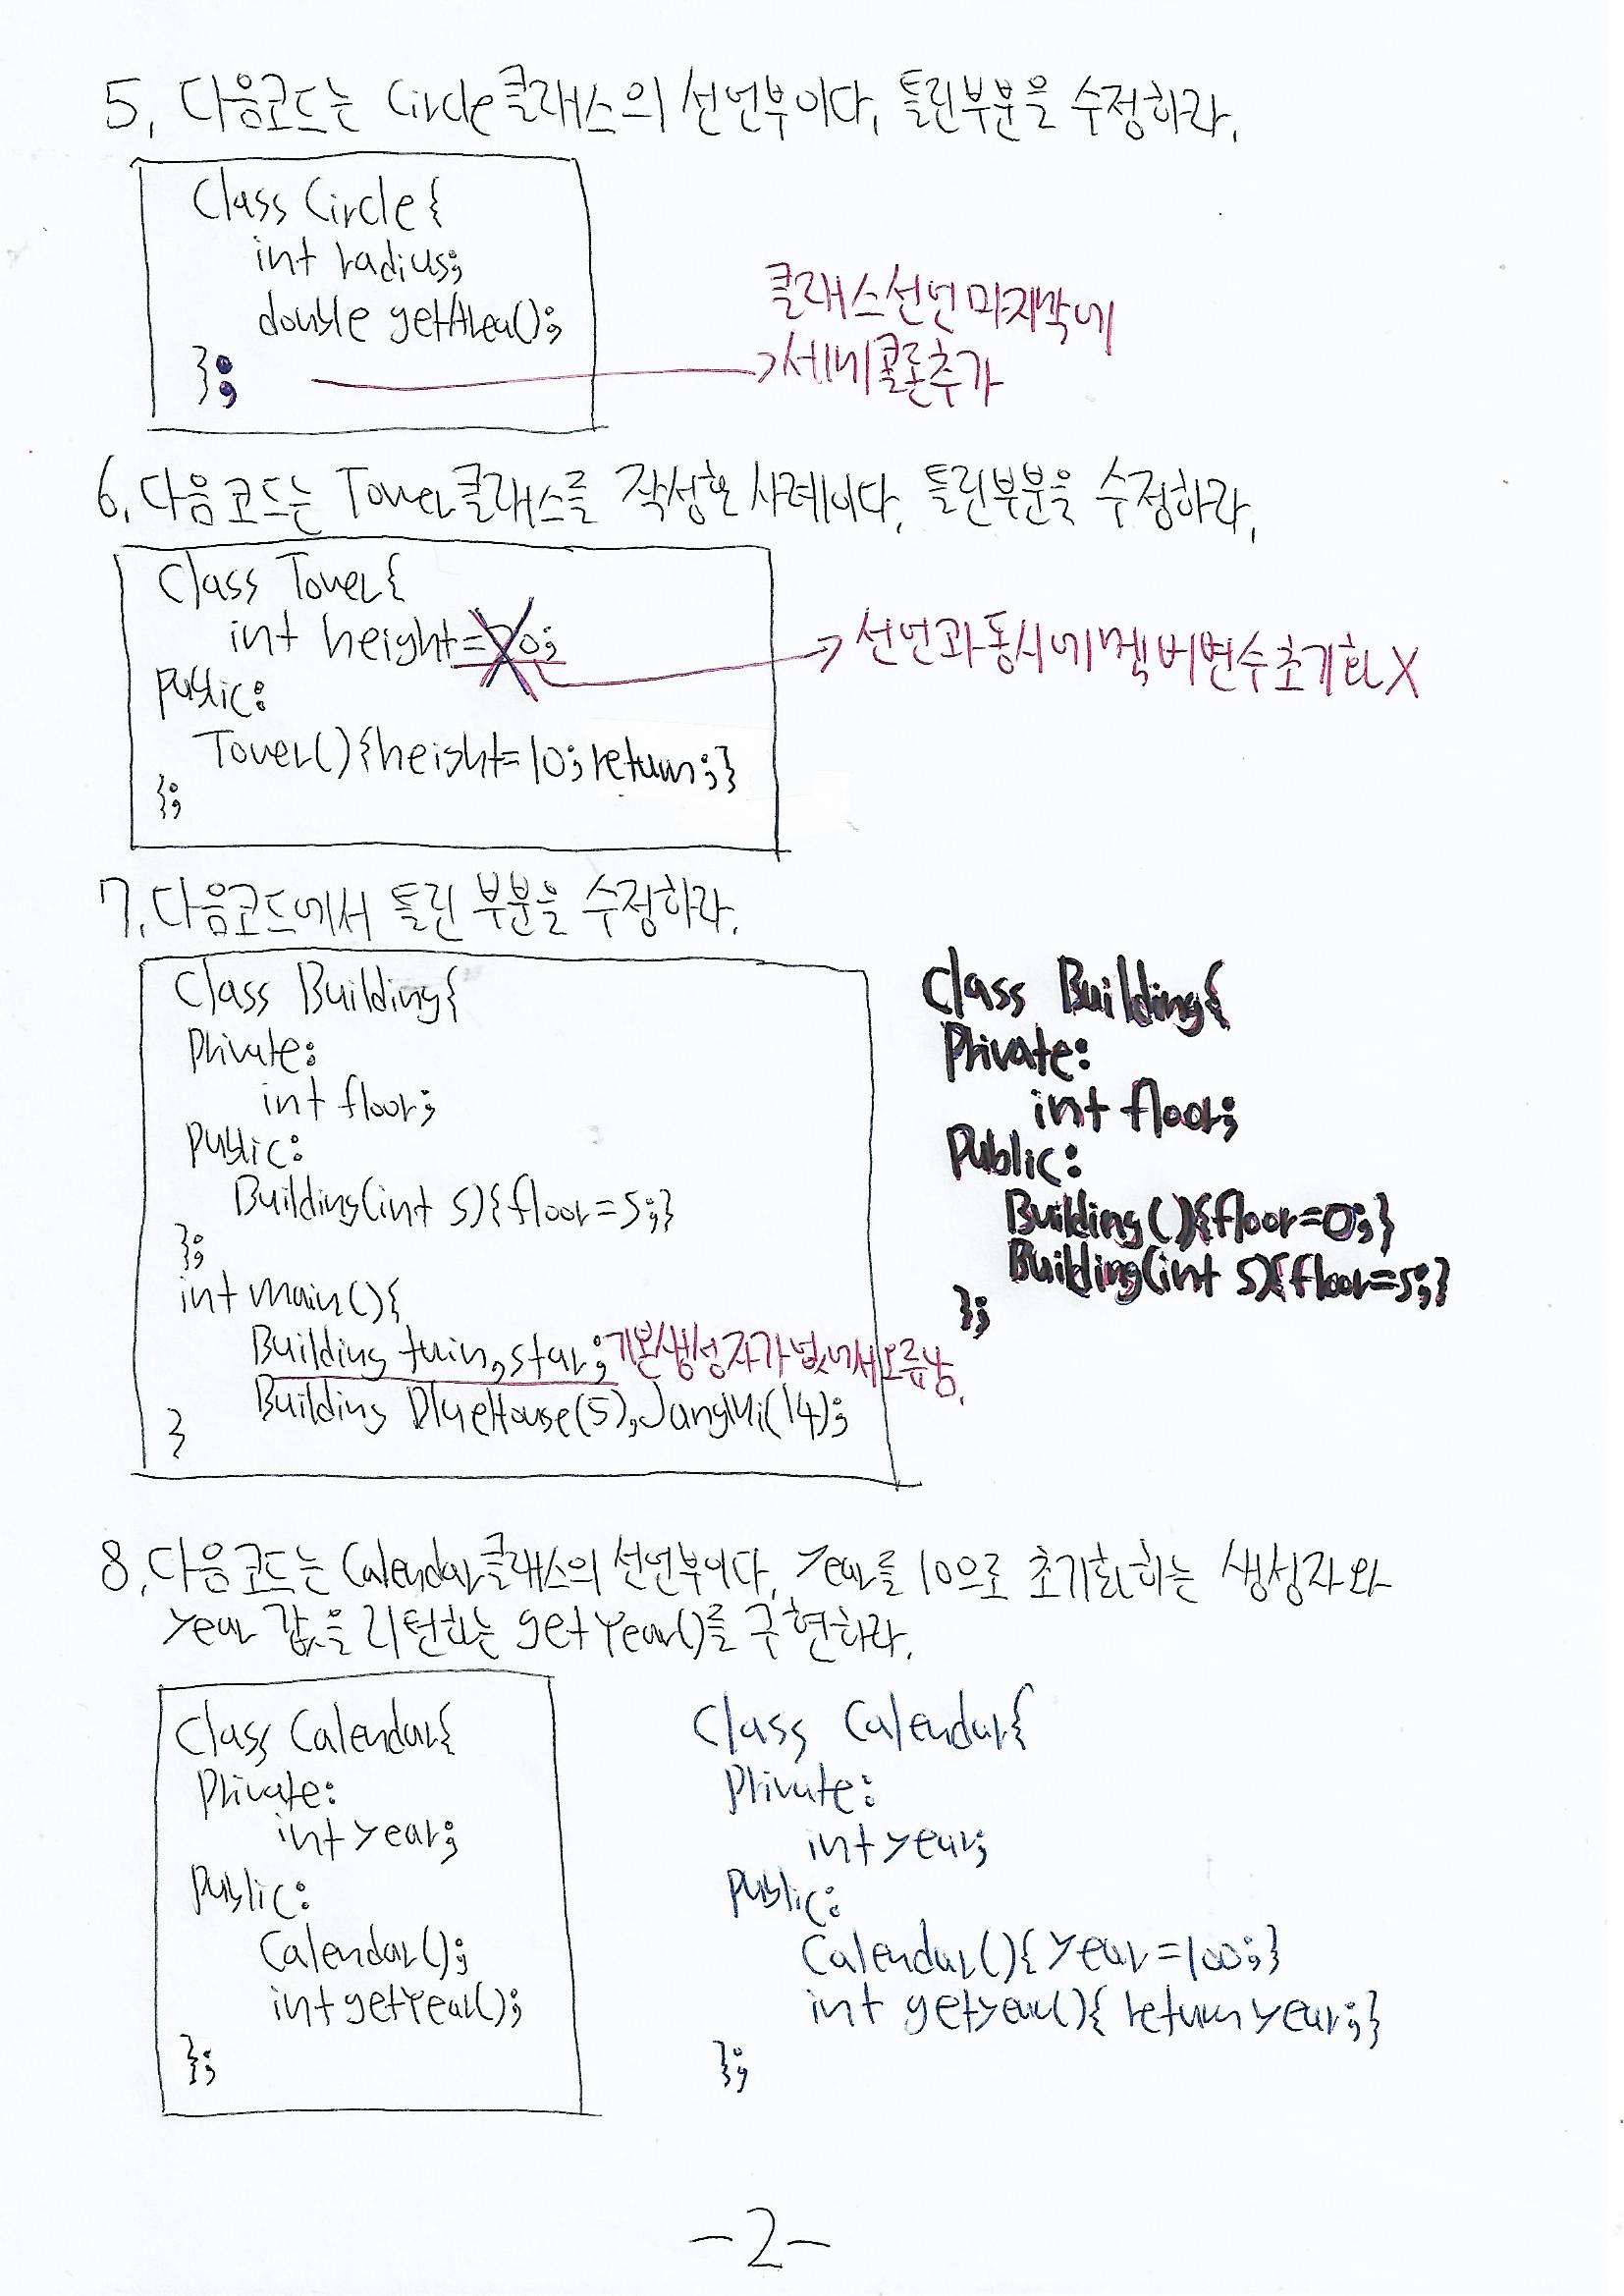 5. 다음코드는 Circle클래스의 선언부이다. 틀린부분을 수정하라.
Class Circle{
int radius;
double getArea();
};
클래스선언 마지막에
세미콜론추가
6. 다음코드는 Tower클래스를 작성한 사례이다. 틀린부분을 수정하라.
Class Tower{
int height=20;
선언과동시에멤버변수초기화X
Public:
Tower(){height=10;return;}
};
7. 다음코드에서 틀린 부분을 수정하라.
Class Building{
Private:
int floor;
Public:
Building(int s){floor=s;}
};
int main(){
Building twin,star; 기본생성자가 없어서 오류남.
Building BlueHouse(5),JangMi(14);
}
Class Building{
Private:
int floor;
Public:
Building(){floor=0;}
Building(int s){floor=s;}
};
8. 다음코드는 Calendar클래스의 선언부이다. year를 10으로 초기화하는 생성자와
year 값을 리턴하는 getYear()를 구현하라.
Class Calendar{
Private:
int year;
Public:
Calendar();
int getYear();
};
Class Calendar{
Private:
int year;
Public:
Calendar(){year=100;}
int getyear(){return year;}
};
-2-